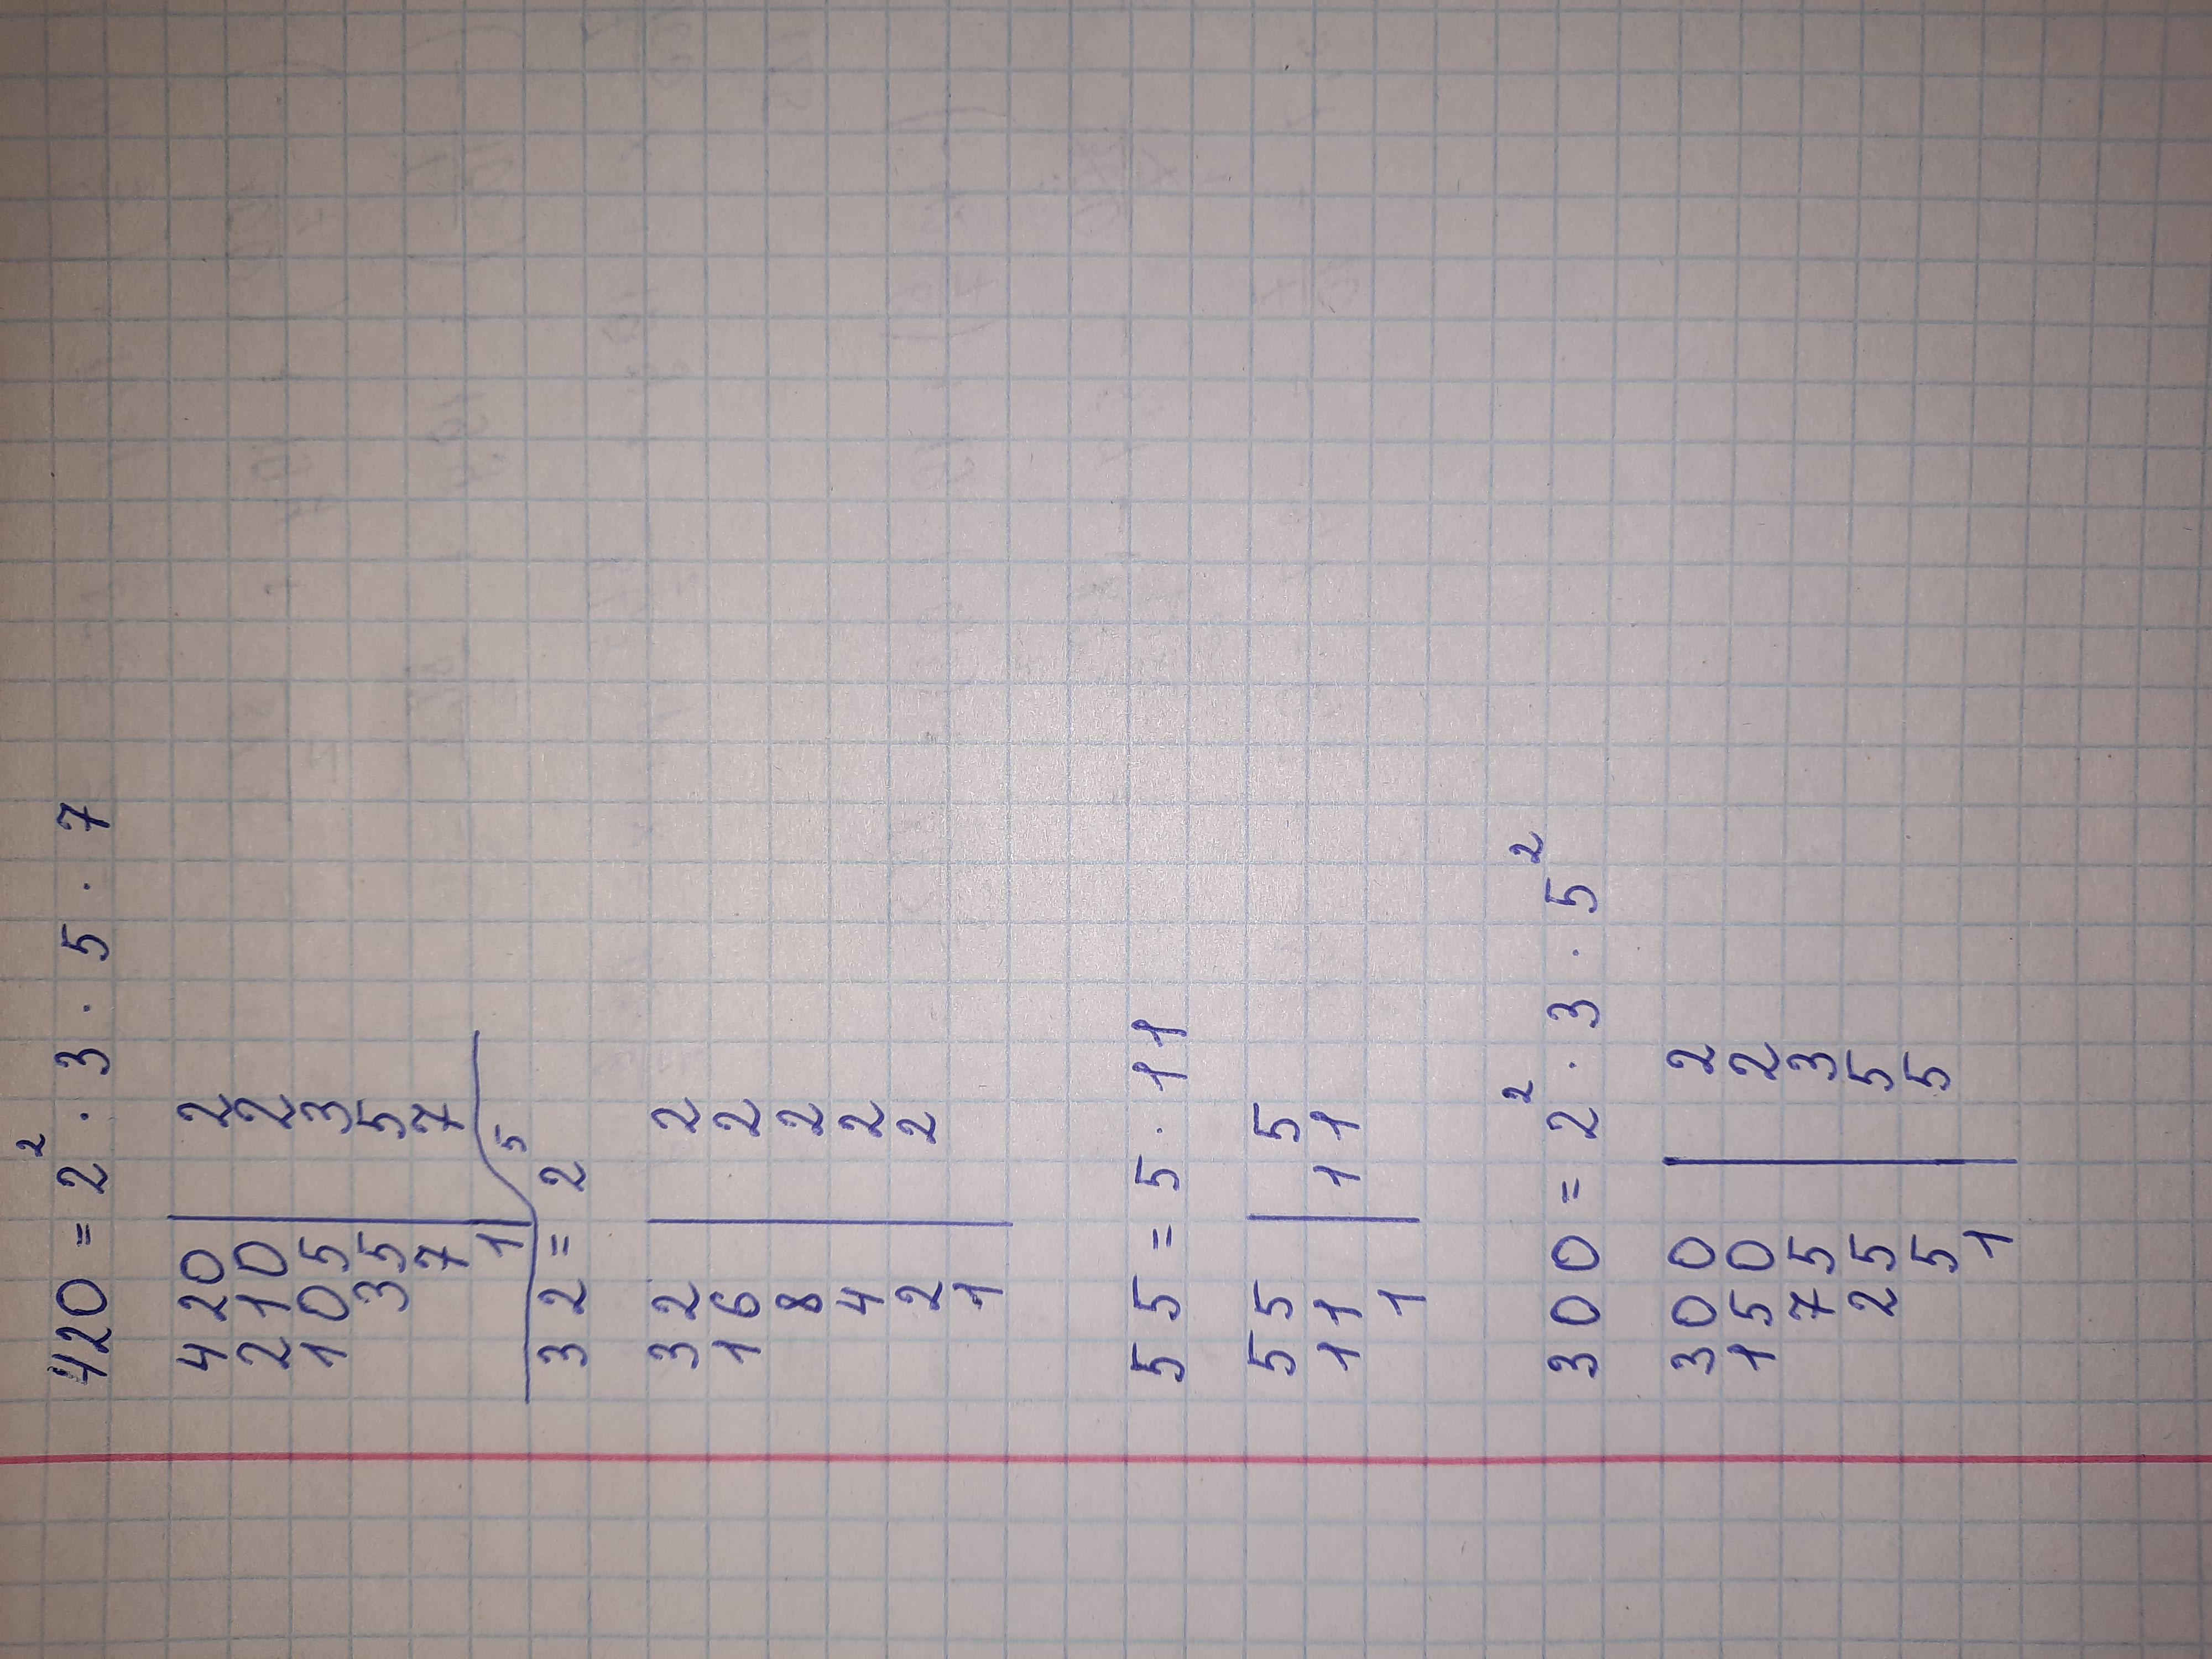 420 = 2² · 3 · 5 · 7
420 | 2
210 | 2
105 | 3
35 | 5
7 | 7
1 |
32 = 2⁵
32 | 2
16 | 2
8 | 2
4 | 2
2 | 2
1 |
55 = 5 · 11
55 | 5
11 | 11
1 |
300 = 2² · 3 · 5²
300 | 2
150 | 2
75 | 3
25 | 5
5 | 5
1 |